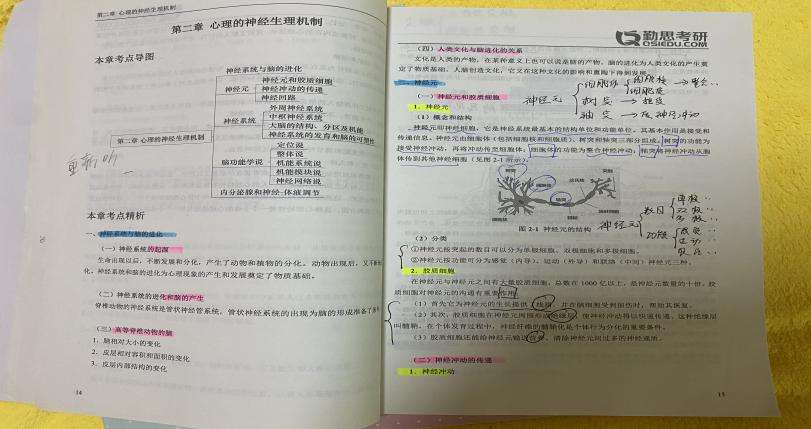 第二章 心理的神经生理机制
第二章 心理的神经生理机制
本章考点导图
神经系统与脑的进化
神经元和胶质细胞
神经元
神经冲动的传递
神经回路
外周神经系统
神经系统
中枢神经系统
大脑的结构、分区及机能
神经系统的发育和脑的可塑性
第二章 心理的神经生理机制
定位说
整体说
脑功能学说
机能系统说
机能模块说
神经网络说
内分泌腺和神经-体液调节
本章考点精析
一、神经系统与脑的进化
（一）神经系统的起源
生命出现以后，不断发展和分化，产生了动物和植物的分化。动物出现后，又不断
化。神经系统和脑的进化为心理现象的产生和发展奠定了物质基础。
（二）神经系统的进化和脑的产生
脊椎动物的神经系统是管状神经管系统，管状神经系统的出现为脑的形成准备了条件
（三）高等脊椎动物的脑
1．脑相对大小的变化
2．皮层相对容积和面积的变化
3．皮层内部结构的变化
14
勤思考研
QSIEDU.COM
（四）人类文化与脑进化的关系
文化是人类的产物，在某种意义上也可以说是脑的产物。脑的进化为人类文化的产生奠
定了物质基础。人脑创造文化，它又在这种文化的影响和熏陶下得到发展。
二、神经元
（一）神经元和胶质细胞
神经元
树突
轴突
1．神经元
（1）概念和结构
神经元即神经细胞，它是神经系统最基本的结构单位和功能单位。其基本作用是接受和
传递信息。神经元由细胞体（包括细胞核和细胞质）、树突和轴突三部分组成。树突的功能为
接受神经冲动，再将冲动传至细胞体；细胞体的功能为整合神经冲动；轴突将神经冲动从胞
体传到其他神经细胞（见图 2-1 所示）。
树突
细胞体
轴突
图 2-1 神经元的结构
神经元
数目
功能
（2）分类
①神经元按突起的数目可以分为单极细胞、双极细胞和多极细胞。
②神经元按功能可分为感觉（内导）、运动（外导）和联络（中间）神经元三种。
2．胶质细胞
在神经元与神经元之间有大量胶质细胞，总数在 1000 亿以上，是神经元数量的十倍。胶
质细胞对神经元的沟通有重要作用。
（1）首先它为神经元的生长提供了线路，并在脑细胞受到损伤时，帮助其恢复。
（2）其次，胶质细胞在神经元周围形成绝缘层，使神经冲动得以快速传递。这种绝缘层
叫髓鞘。在个体发育过程中，神经纤维的髓鞘化是个体行为分化的重要条件。
（3）胶质细胞还能给神经元输送营养，清除神经元间过多的神经递质。
（二）神经冲动的传递
1．神经冲动
15